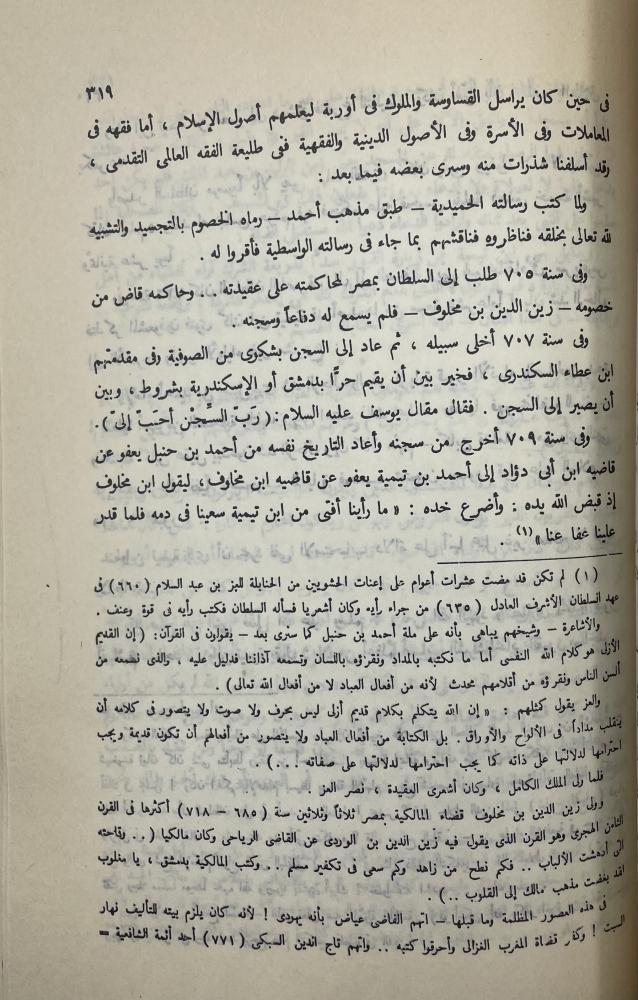 ٣١٩
فى حين كان يراسل القساوسة والملوك فى أوربة ليعلمهم أصول الإسلام ، أما فقهه فى
المعاملات وفى الأسرة وفى الأصول الدينية والفقهية ففى طليعة الفقه العالمى التقدمى ،
وقد أسلفنا شذرات منه وسنرى بعضه فيما بعد :
ولما كتب رسالته الحميدية – طبق مذهب أحمد – رماه الخصوم بالتجسيد والتشبيه
لله تعالى بخلقه فناظروه فناقشهم بما جاء فى رسالته الواسطية فأقروا له .
وفى سنة ٧٠٥ طلب إلى السلطان بمصر لمحاكمته على عقيدته .. وحاكمه قاض من
خصومه – زين الدين بن مخلوف – فلم يسمع له دفاعاً وسجنه .
وفى سنة ٧٠٧ أخلى سبيله ، ثم عاد إلى السجن بشكوى من الصوفية وفى مقدمتهم
ابن عطاء السكندرى ، فخير بين أن يقيم حرًّا بدمشق أو الإسكندرية بشروط ، وبين
أن يصير إلى السجن . فقال مقال يوسف عليه السلام : ( رَبّ السِّجْن أحَبّ إلىّ ) .
وفى سنة ٧٠٩ أخرج من سجنه وأعاد التاريخ نفسه من أحمد بن حنبل يعفو عن
قاضيه ابن أبى دؤاد إلى أحمد بن تيمية يعفو عن قاضيه ابن مخلوف ، ليقول ابن مخلوف
إذ قبض الله يده : وأضرع خده : « ما رأينا أفتى من ابن تيمية سعينا فى دمه فلما قدر
علينا عفا عنا »(١) .
( ١ ) لم تكن قد مضت عشرات أعوام على إعنات الحشويين من الحنابلة للعز بن عبد السلام ( ٦٦٠ ) فى
عهد السلطان الأشرف العادل ( ٦٣٥ ) من جراء رأيه وكان أشعريا فسأله السلطان فكتب رأيه فى قوة وعنف .
والأشاعرة – وشيخهم يباهى بأنه على ملة أحمد بن حنبل كما سنرى بعد – يقولون فى القرآن : ( إن القديم
الأزلى هو كلام الله النفسى أما ما نكتبه بالمداد ونقرؤه باللسان وتسمعه آذاننا فدليل عليه ، والذى نسمعه من
ألسن الناس ونقرؤه من أقلامهم محدث لأنه من أفعال العباد لا من أفعال الله تعالى ) .
والعز يقول كمثلهم : « إن الله يتكلم بكلام قديم أزلى ليس بحرف ولا صوت ولا يتصور فى كلامه أن
ينقلب مداداً فى الألواح والأوراق . بل الكتابة من أفعال العباد ولا يتصور من أفعالهم أن تكون قديمة ويجب
احترامها لدلالتها على ذاته كما يجب احترامها لدلالتها على صفاته ! .. ) .
فلما ولى الملك الكامل ، وكان أشعرى العقيدة ، نصر العز .
وولى زين الدين بن مخلوف قضاء المالكية بمصر ثلاثاً وثلاثين سنة ( ٦٨٥ – ٧١٨ ) أكثرها فى القرن
الثامن الهجرى وهو القرن الذى يقول فيه زين الدين بن الوردى عن القاضى الرياحى وكان مالكيا ( .. وقاحته
التى أدهشت الألباب .. فكم نطح من زاهد وكم سعى فى تكفير مسلم .. وكتب المالكية بدمشق ، يا مغلوب
لقد بغضت مذهب مالك إلى القلوب .. ) .
فى هذه العصور المظلمة وما قبلها – اتهم القاضى عياض بأنه يهودى ! لأنه كان يلزم بيته للتأليف نهار
السبت ! وكفر قضاة المغرب الغزالى وأحرقوا كتبه .. واتهم تاج الدين السبكى ( ٧٧١ ) أحد أئمة الشافعية =